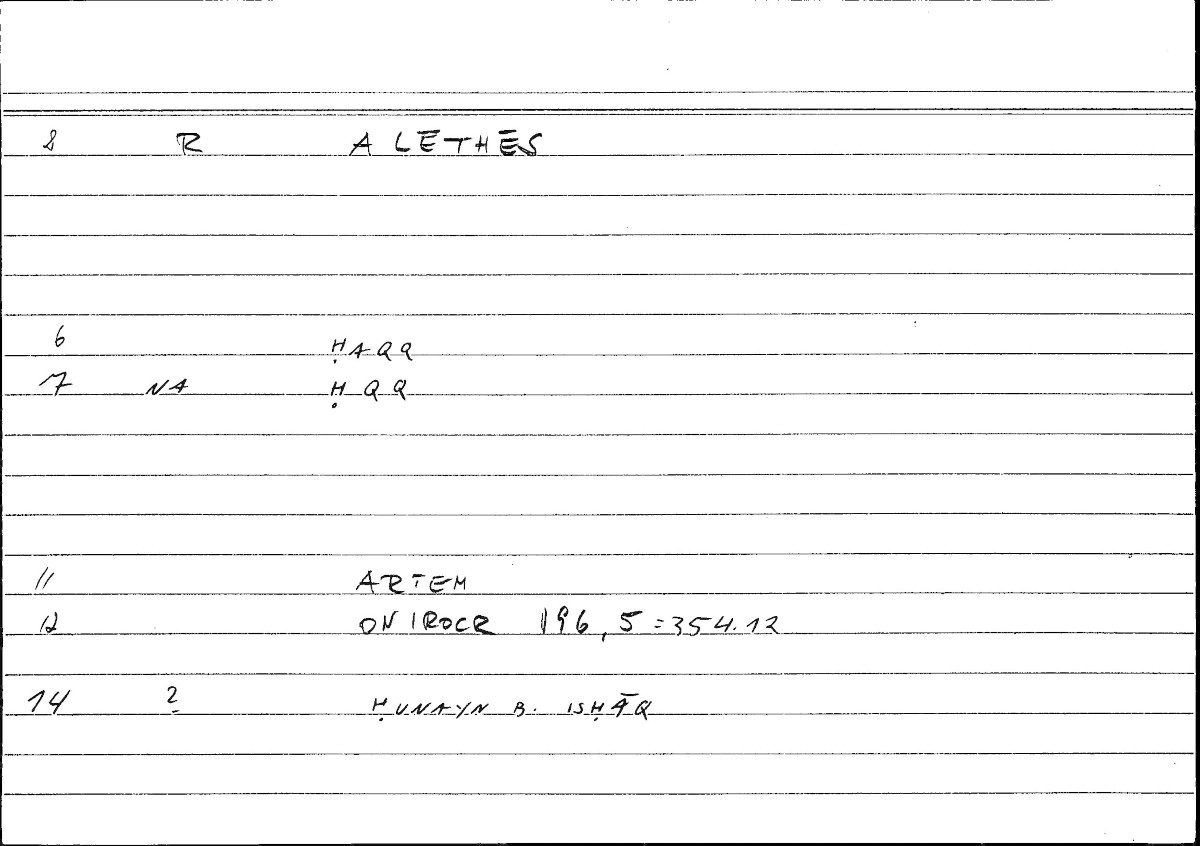 8 R ALĒTHĒS
6 ḤAQQ
7 NA ḤQQ
11 ARTEM
12 ONIROCR 196,5=354.12
14 2 ḤUNAYN B. ISḤĀQ